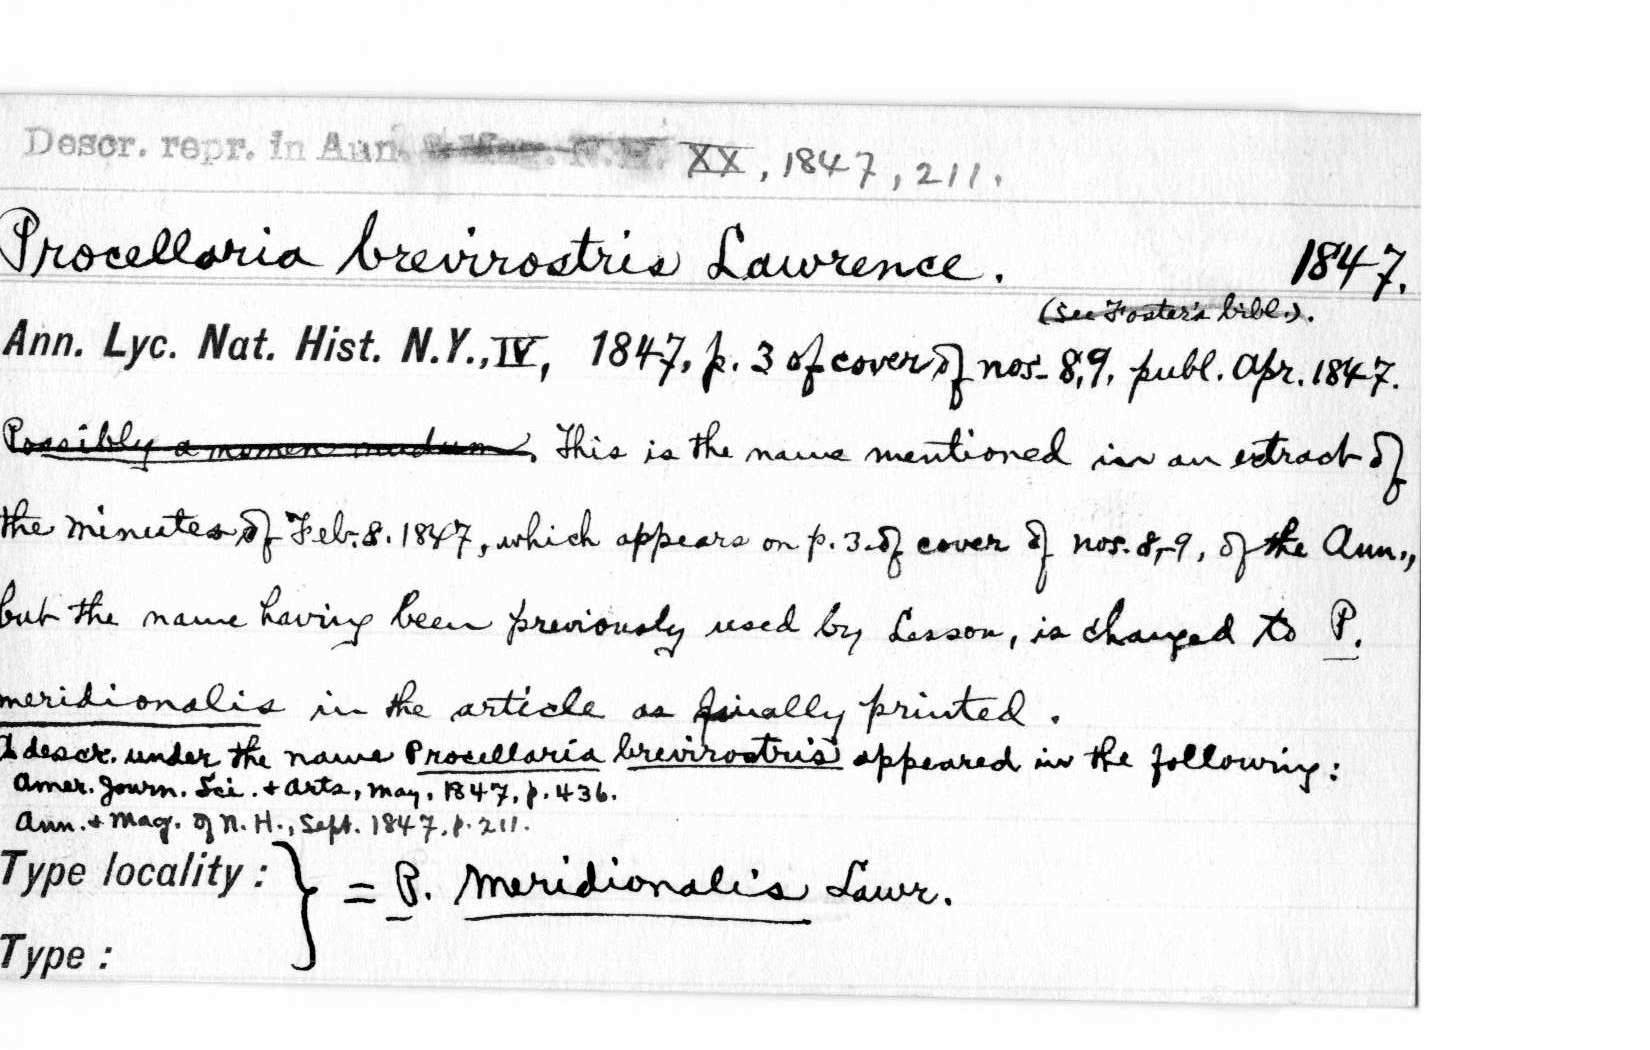 Descr. repr. in Ann. & Mag. N.H. XX, 1847, 211.
Procellaria brevirostris Lawrence. 1847.
(see Foster's bibl.).
Ann. Lyc. Nat. Hist. N.Y., IV, 1847, p. 3 of cover of nos. 8,9, publ. Apr. 1847.
Possibly a nomen nudum. This is the name mentioned in an extract of
the minutes of Feb. 8. 1847, which appears on p. 3 of cover of nos. 8,-9, of the Ann.,
but the name having been previously used by Lesson, is changed to P.
meridionalis in the article as finally printed.
A descr. under the name Procellaria brevirostris appeared in the following:
Amer. Journ. Sci. & Arts, May, 1847, p. 436.
Ann. & Mag. of N. H., Sept. 1847, p. 211.
Type locality : } = P. meridionalis Lawr.
Type :